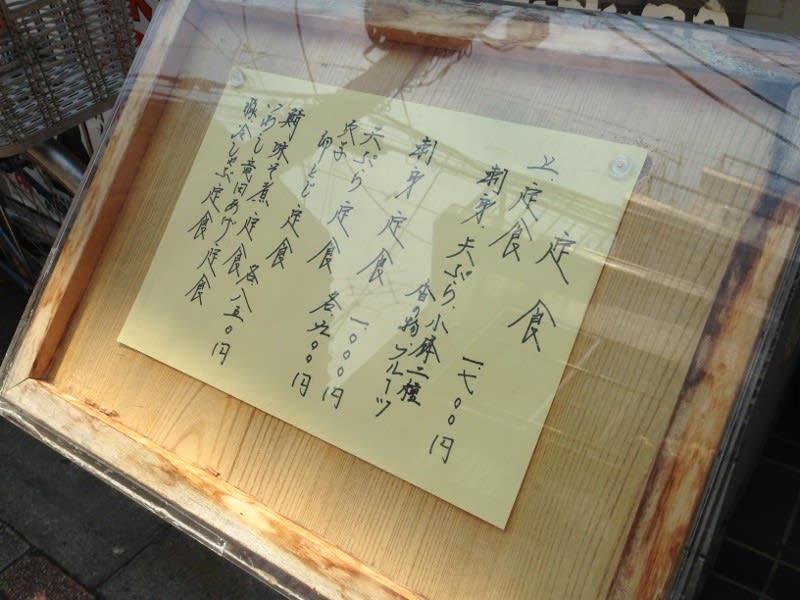 定食
上定食 一、七〇〇円
刺身・天ぷら・小鉢二種
香の物・フルーツ
刺身定食 一、〇〇〇円
天ぷら定食
穴子卵とじ定食 各九〇〇円
鯖味噌煮定食
つぁし竜田あげ定食 各八五〇円
豚冷しゃぶ定食